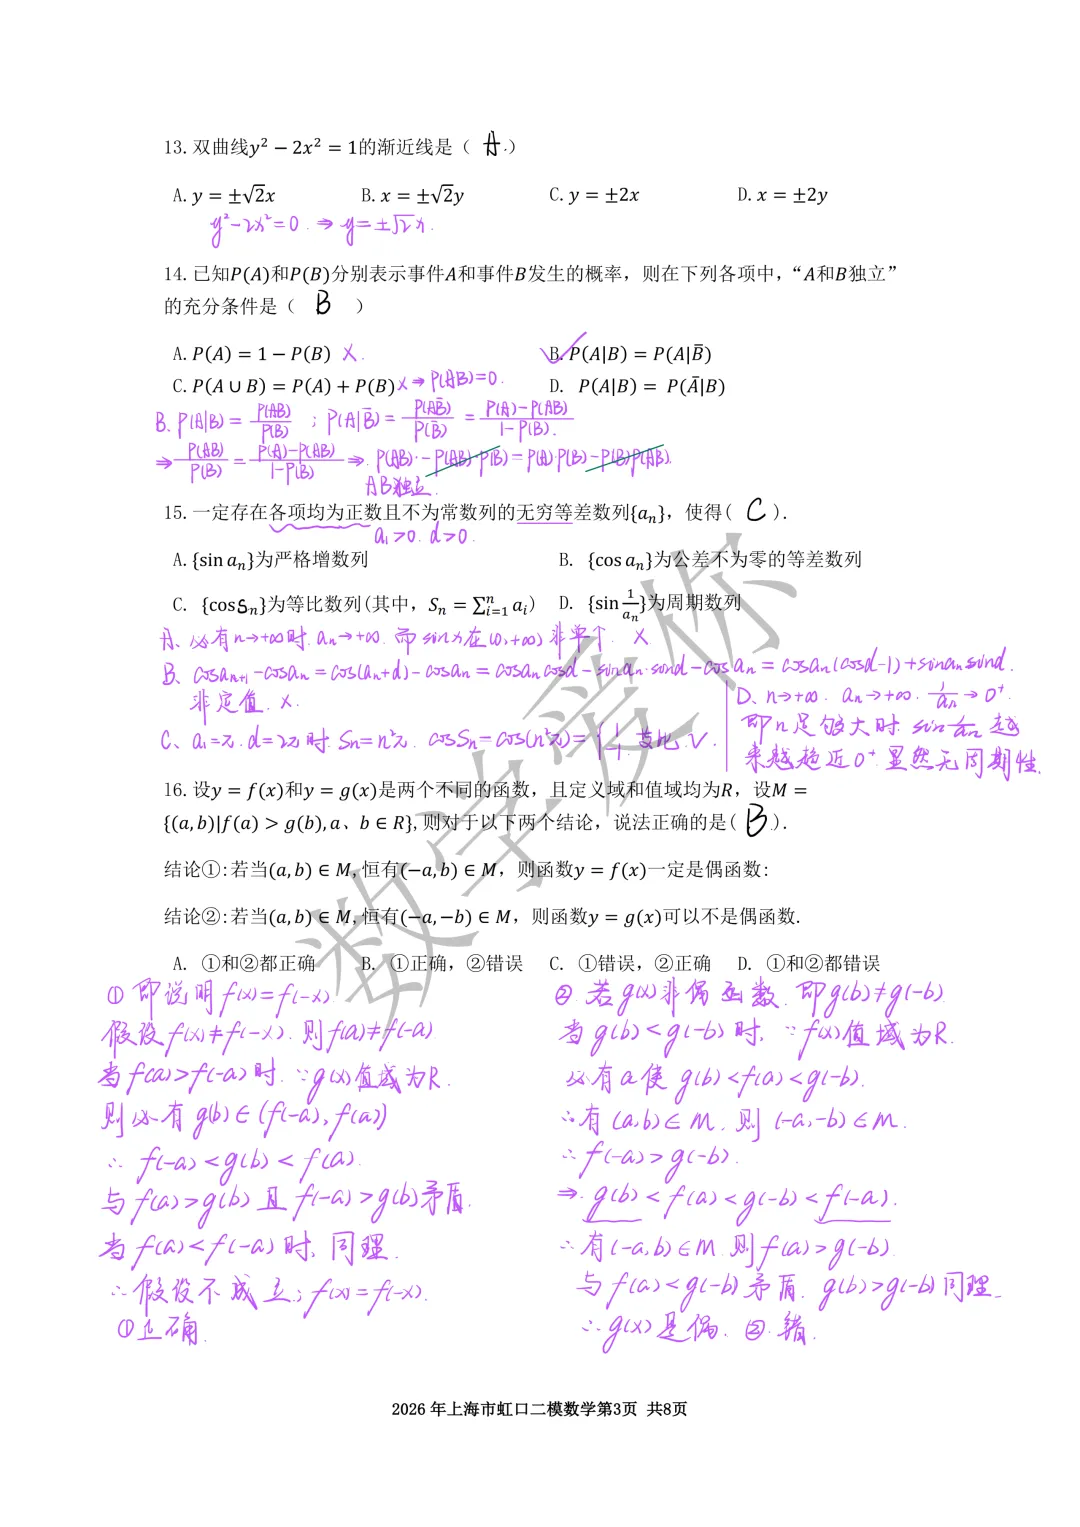 13.双曲线y² − 2x² = 1的渐近线是（ A ）
A. y = ±√2x B. x = ±√2y C. y = ±2x D. x = ±2y
y²-2x²=0. ⇒ y=±√2x.
14.已知P(A)和P(B)分别表示事件A和事件B发生的概率，则在下列各项中，“A和B独立”
的充分条件是（ B ）
A. P(A) = 1 − P(B) × . B. P(A|B) = P(A|B̄) ✓
C. P(A ∪ B) = P(A) + P(B) × ⇒ P(AB)=0. D. P(A|B) = P(Ā|B)
B. P(A|B) = P(AB)/P(B) ; P(A|B̄) = P(AB̄)/P(B̄) = P(A)-P(AB)/1-P(B).
⇒ P(AB)/P(B) = P(A)-P(AB)/1-P(B) ⇒ P(AB)-P(AB)·P(B)=P(A)·P(B)-P(B)P(AB).
AB独立.
15.一定存在各项均为正数且不为常数列的无穷等差数列{aₙ}，使得( C ).
a₁>0. d>0.
A.{sin aₙ}为严格增数列 B. {cos aₙ}为公差不为零的等差数列
C. {cosSₙ}为等比数列(其中，Sₙ = ∑ⁿᵢ₌₁ aᵢ) D. {sin 1/aₙ}为周期数列
A、必有n→+∞时. aₙ→+∞. 而sinx在(0,+∞)非单个. ×
B、cosaₙ₊₁-cosaₙ=cos(aₙ+d)-cosaₙ=cosaₙcosd-sinaₙ·sind-cosaₙ=cosaₙ(cosd-1)+sinaₙsind.
非定值. ×.
D、n→+∞. aₙ→+∞. 1/aₙ→0⁺.
即n足够大时. sin 1/aₙ 越
来越趋近0⁺ 显然无周期性.
C、a₁=π. d=2π时. Sₙ=n²π. cosSₙ=cos(n²π)= 等比. ✓.
16.设y = f(x)和y = g(x)是两个不同的函数，且定义域和值域均为R，设M =
{(a,b)|f(a) > g(b),a、b ∈ R},则对于以下两个结论，说法正确的是( B ).
结论①:若当(a,b) ∈ M,恒有(−a,b) ∈ M，则函数y = f(x)一定是偶函数:
结论②:若当(a,b) ∈ M,恒有(−a,−b) ∈ M，则函数y = g(x)可以不是偶函数.
A. ①和②都正确 B. ①正确，②错误 C. ①错误，②正确 D. ①和②都错误
① 即说明f(x)=f(-x)
假设f(x)≠f(-x). 则f(a)≠f(-a)
当f(a)>f(-a)时. ∵g(x)值域为R.
则必有g(b)∈(f(-a), f(a))
∴ f(-a)<g(b)<f(a).
与f(a)>g(b)且f(-a)>g(b)矛盾.
当f(a)<f(-a)时, 同理.
∴假设不成立; f(x)=f(-x).
①正确.
②. 若g(x)非偶函数. 即g(b)≠g(-b)
当g(b)<g(-b)时, ∵f(x)值域为R.
必有a使g(b)<f(a)<g(-b).
∴有(a,b)∈M. 则(-a,-b)∈M.
∴f(-a)>g(-b).
⇒. g(b)<f(a)<g(-b)<f(-a).
∴有(-a,b)∈M 则f(a)>g(-b)
与f(a)<g(-b)矛盾. g(b)>g(-b)同理.
∴g(x)是偶. ②.错.
数学爱你
2026 年上海市虹口二模数学第3页 共8页